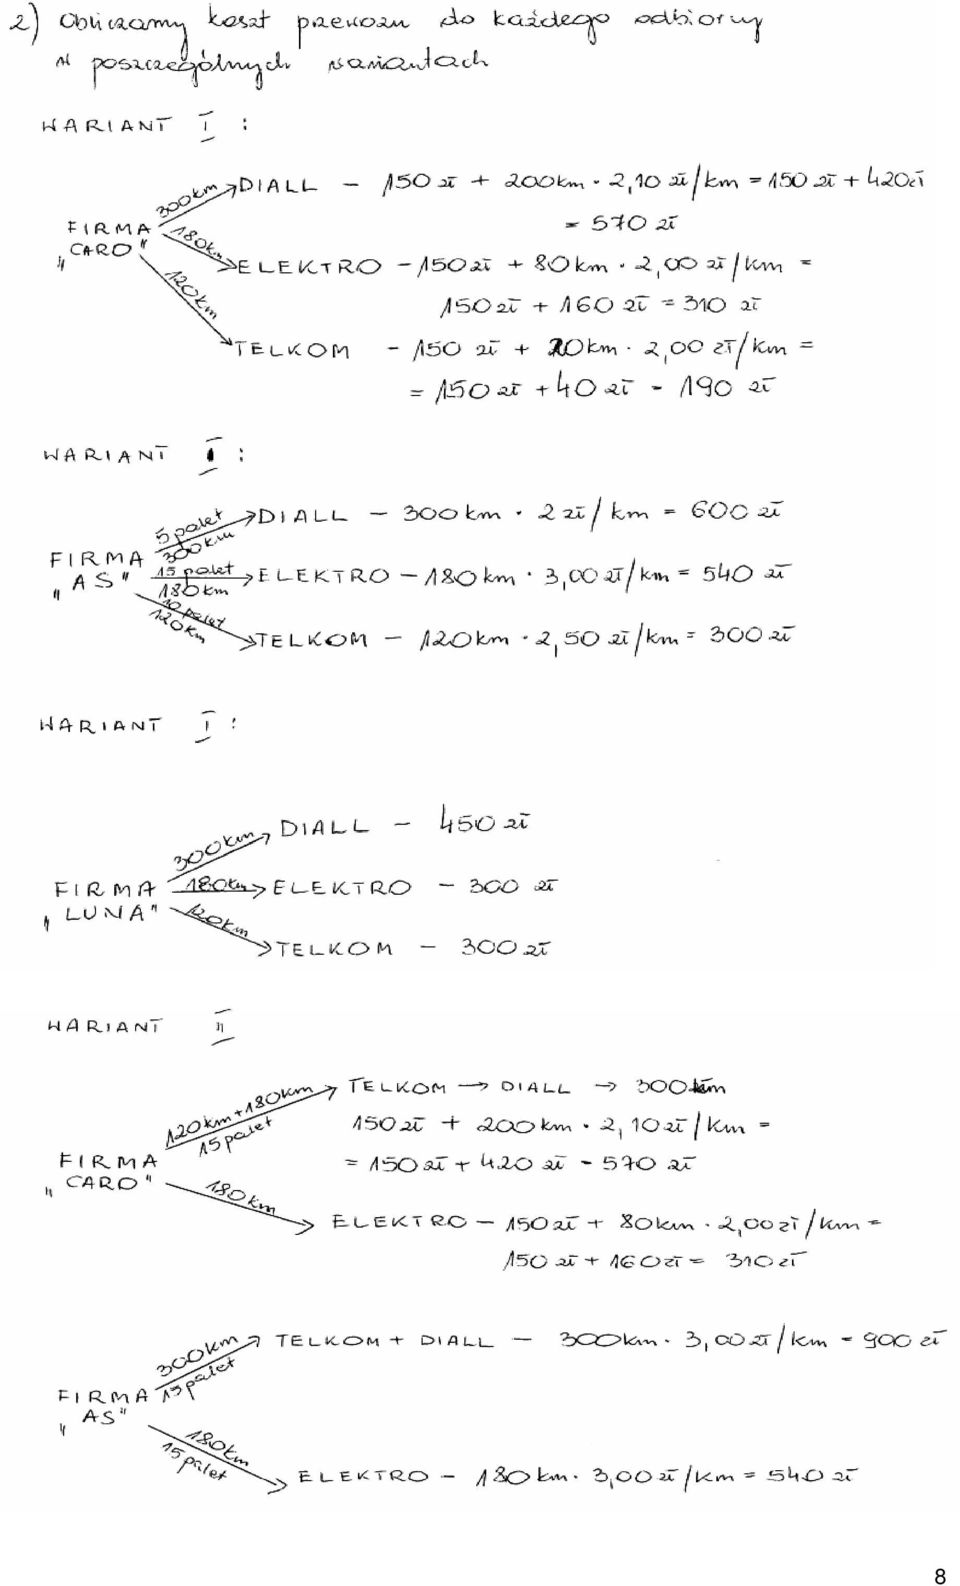 2) Obliczamy koszt przewozu do każdego odbiorcy
w poszczególnych wariantach
WARIANT I :
300km DIALL - 150 zł + 200km · 2,10 zł/km = 150 zł + 420zł
= 570 zł
FIRMA „CARO"
180km ELEKTRO - 150 zł + 80km · 2,00 zł/km =
150 zł + 160 zł = 310 zł
120km TELKOM - 150 zł + 20km · 2,00 zł/km =
= 150 zł + 40 zł = 190 zł
WARIANT I :
5 palet 300km DIALL - 300km · 2 zł/km = 600 zł
FIRMA „AS"
15 palet 180km ELEKTRO - 180km · 3,00 zł/km = 540 zł
10 palet 120km TELKOM - 120km · 2,50 zł/km = 300 zł
WARIANT I :
300km DIALL - 450 zł
FIRMA „LUNA"
180km ELEKTRO - 300 zł
120km TELKOM - 300 zł
WARIANT II
120km+180km 15 palet TELKOM → DIALL → 300km
150 zł + 200km · 2,10 zł/km =
= 150 zł + 420 zł = 570 zł
FIRMA „CARO"
180km ELEKTRO - 150 zł + 80km · 2,00 zł/km =
150 zł + 160 zł = 310 zł
300km 15 palet TELKOM + DIALL - 300km · 3,00 zł/km = 900 zł
FIRMA „AS"
180km 15 palet ELEKTRO - 180km · 3,00 zł/km = 540 zł
8